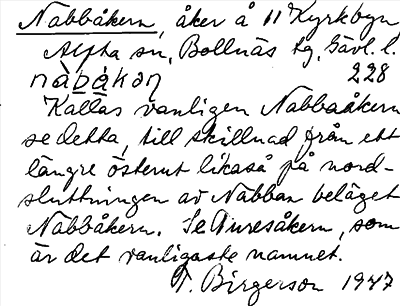 Nabbåkern, åker å 11 Kyrkbyn
Alfta sn, Bollnäs tg, Gävl. l.
nàbákaṇ 228
Kallas vanligen Nabbaåkern
se detta, till skillnad från ett
längre österut likaså på nord-
sluttningen av Nabban beläget
Nabbåkern. Se Turesåkern, som
är det vanligaste namnet.
T. Birgerson 1947